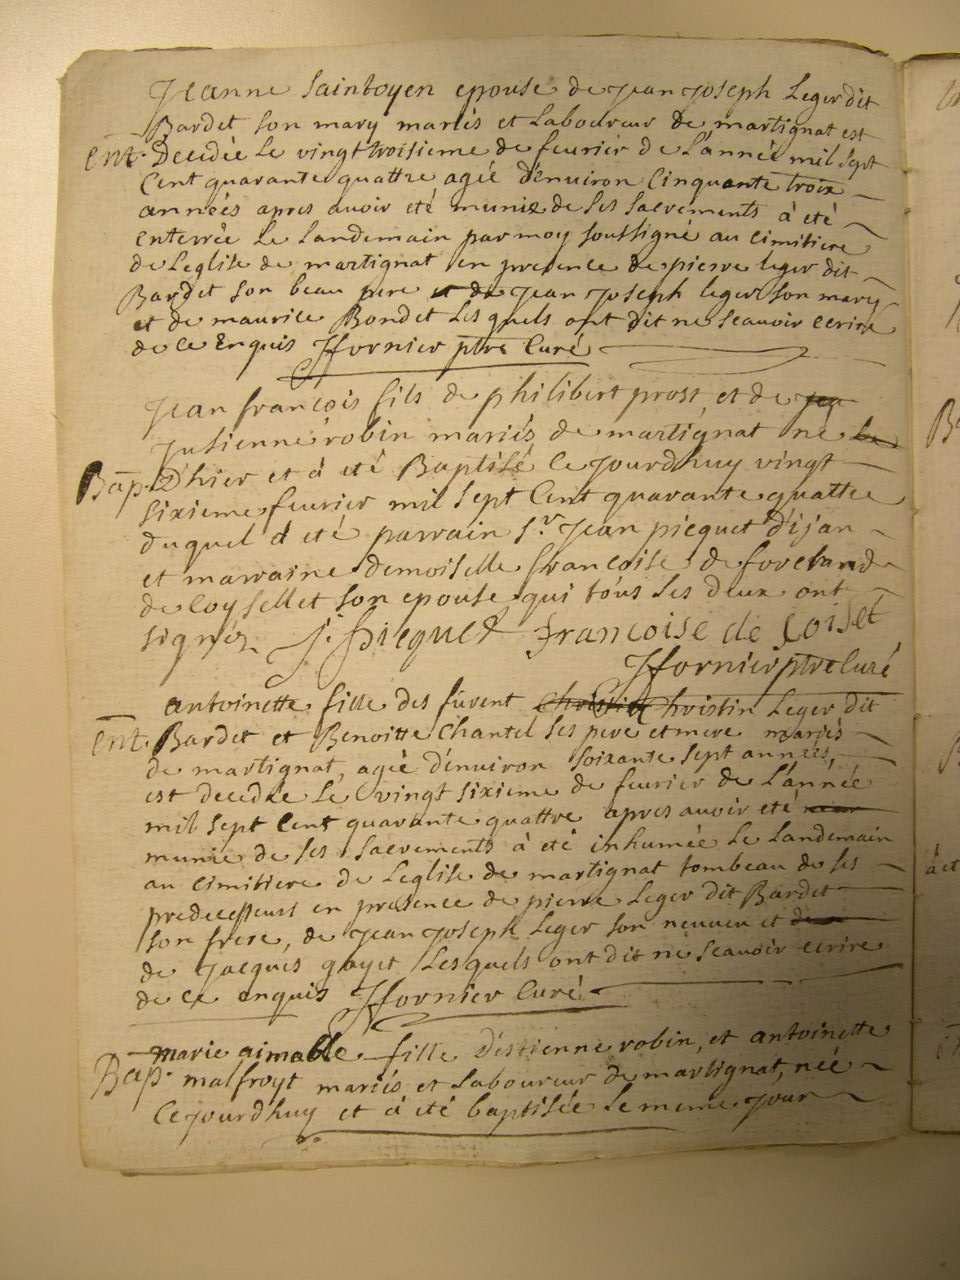 Jeanne Saintoyen epouse de jean joseph Leger dit
Bardet son mary mariés et Laboureur de martignat est
Ent. Decedée Le vingt troisieme de feurier de L'année mil sept
Cent quarante quattre agée d'enuiron Cinquante troix
années apres auoir eté munie de ses sacrements à eté
enterrée Le Landemain par moy soussigné au cimitiere
de L'eglise de martignat en presence de pierre leger dit
Bardet son beau pere et de jean joseph leger son mary
et de maurice Bondet Les quels ont dit ne scauoir ecrire
de ce enquis Jfornier ptre Curé
Jean françois fils de philibert prost et de jea
Julienne robin mariés de martignat ne Le
Bap. D'hier et à eté Baptisé Ce jourdhuy vingt
sixieme feurier mil sept Cent quarante quattre
duquel à eté parrain sr jean picquet d'ijan
et marraine demoiselle francoise de forcrand
de Coysellet son epouse qui tous les deux ont
signéz J. Picquet Françoise de Coiselet
Jfornier ptre Curé
antoinette fille des furent Christin Christin Leger dit
Ent. Bardet et Benoitte Chantel ses pere et mere mariés
de martignat, agée d'enuiron soixante sept années,
est decedée Le vingt sixieme de feurier de L'année
mil sept Cent quarante quattre apres auoir eté
munie de ses sacrements à eté inhumée Le Landemain
au cimitiere de L'eglise de martignat tombeau de ses
predecesseurs en presence de pierre Leger dit Bardet
son frere, de jean joseph Leger son neuueu et de
de jacques gayet Lesquels ont dit ne scauoir ecrire
de ce enquis Jfornier Curé
marie aimable fille d'estienne robin, et antoinette
Bap. malfroyt mariés et Laboureur de martignat, née
Ce jourdhuy et à eté baptisée Le meme jour